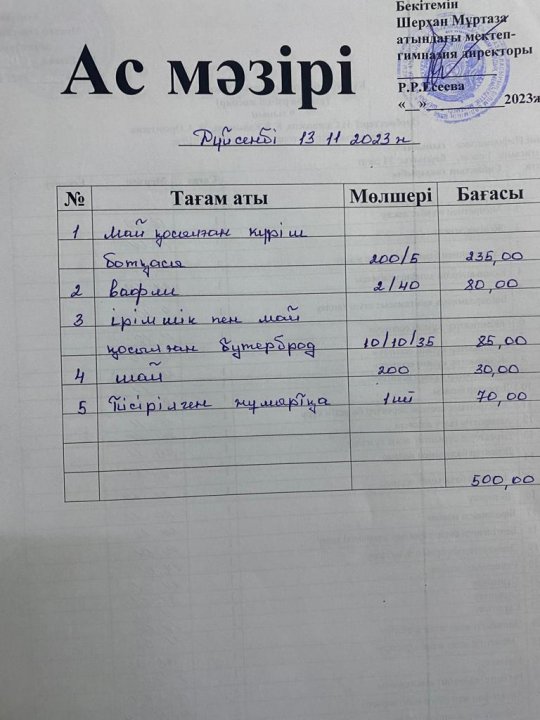 Бекітемін
Шерхан Мұртаза
атындағы мектеп-
гимназия директоры
Р.Р.Есеева
«__»____________2023ж
Ас мәзірі
Дүйсенбі 13 11 2023 ж
№ Тағам аты Мөлшері Бағасы
1 май қосылған күріш
ботқасы 200/5 235,00
2 вафли 2/40 80,00
3 ірімшік пен май
қосылған бутерброд 10/10/35 85,00
4 шай 200 30,00
5 Пісірілген жұмыртқа 1шт 70,00
500,00